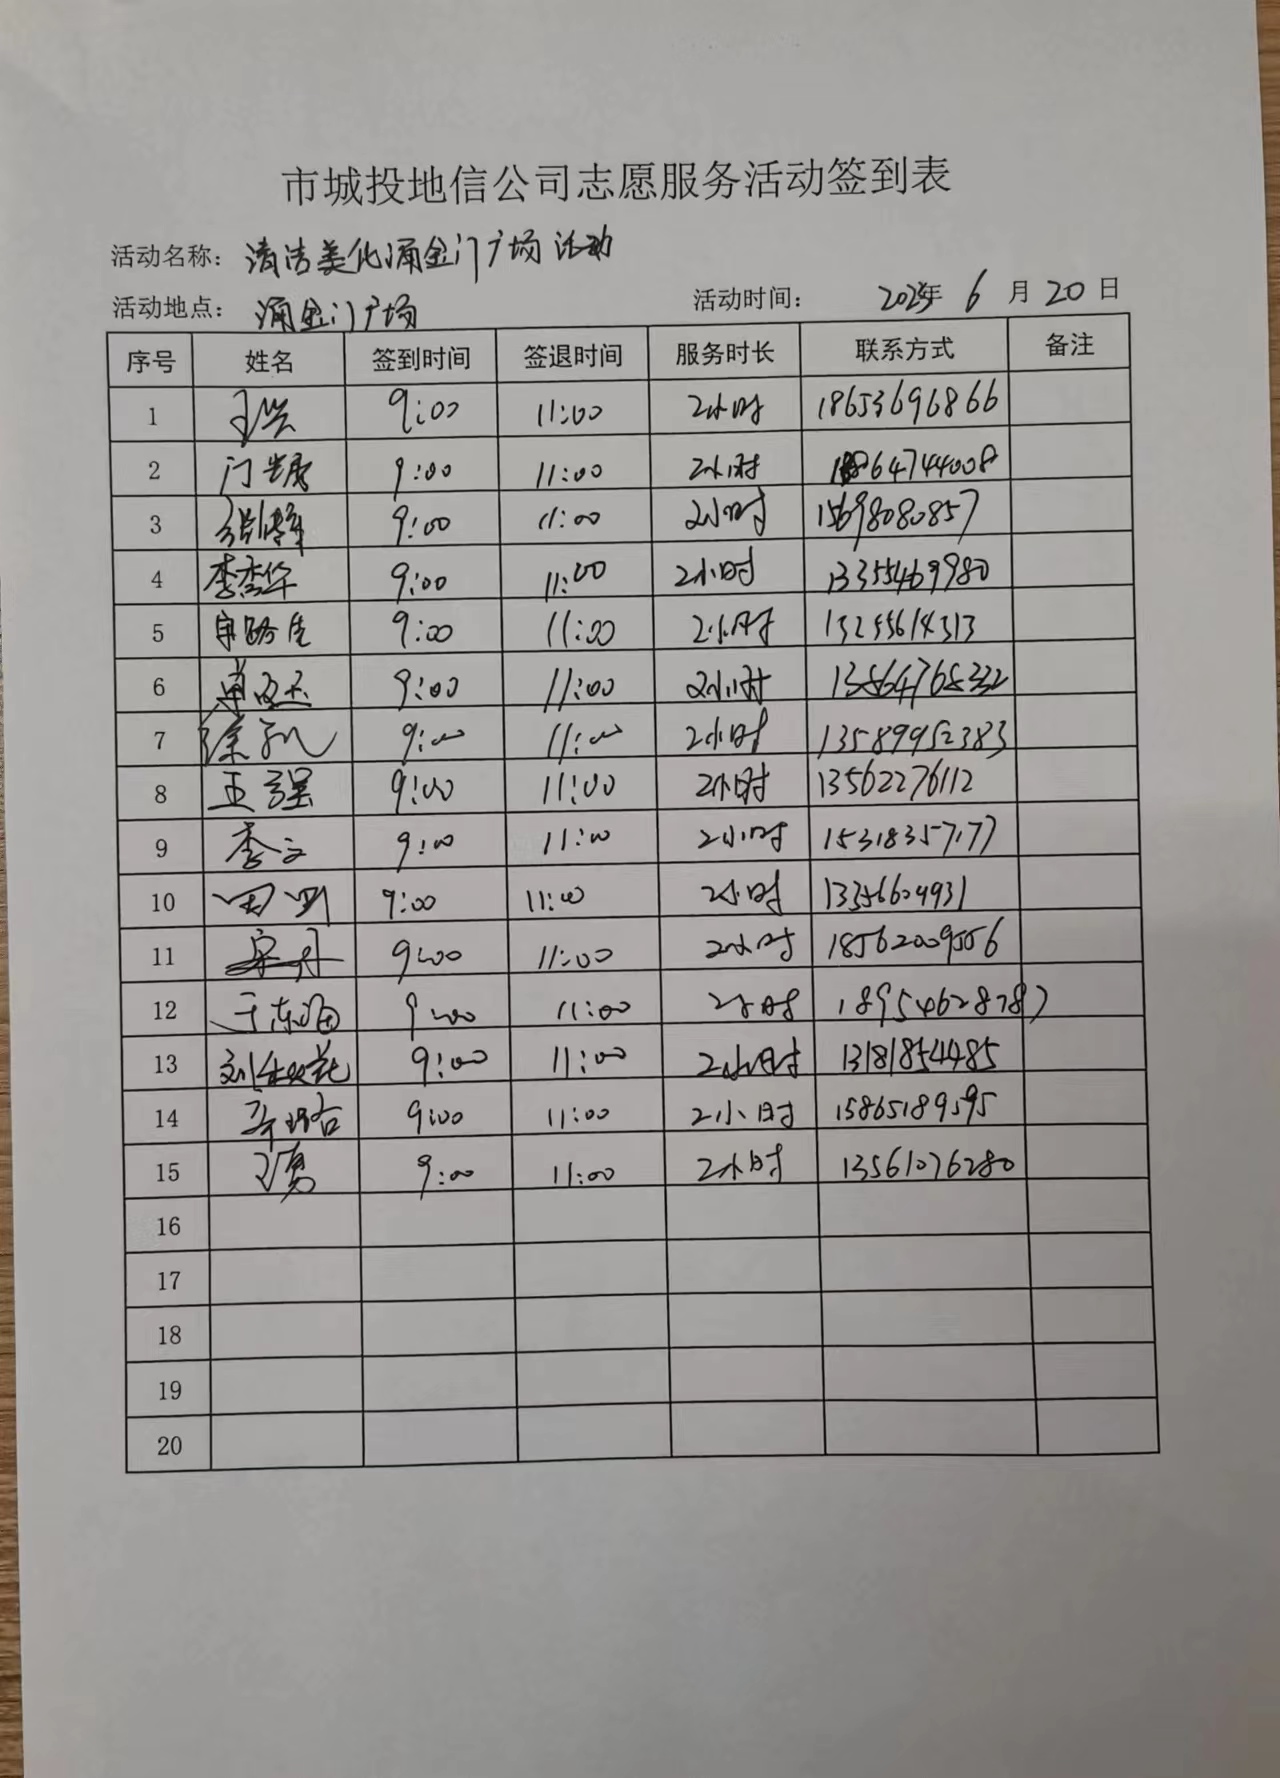 市城投地信公司志愿服务活动签到表
活动名称: 清洁美化涌金门广场活动
活动地点: 涌金门广场 活动时间: 2025年 6 月 20 日
序号 姓名 签到时间 签退时间 服务时长 联系方式 备注
1 9:00 11:00 2小时 18653696866
2 9:00 11:00 2小时 18864744008
3 9:00 11:00 2小时 15698080857
4 李秀华 9:00 11:00 2小时 13355469980
5 9:00 11:00 2小时 13255614313
6 9:00 11:00 2小时 13564765332
7 9:00 11:00 2小时 13589952383
8 王强 9:00 11:00 2小时 13562276112
9 李文 9:00 11:00 2小时 15318357177
10 9:00 11:00 2小时
11 宋丹 9:00 11:00 2小时 18562009556
12 于东海 9:00 11:00 2小时 18954628787
13 9:00 11:00 2小时 13181854485
14 9:00 11:00 2小时 15865189595
15 王勇 9:00 11:00 2小时 13561076280
16
17
18
19
20